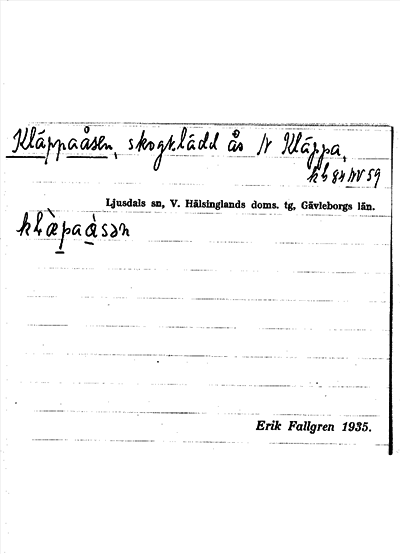 Kläppaåsen, skogklädd ås N Kläppa,
kb 84 NV 59
Ljusdals sn, V. Hälsinglands doms. tg, Gävleborgs län.
Erik Fallgren 1935.